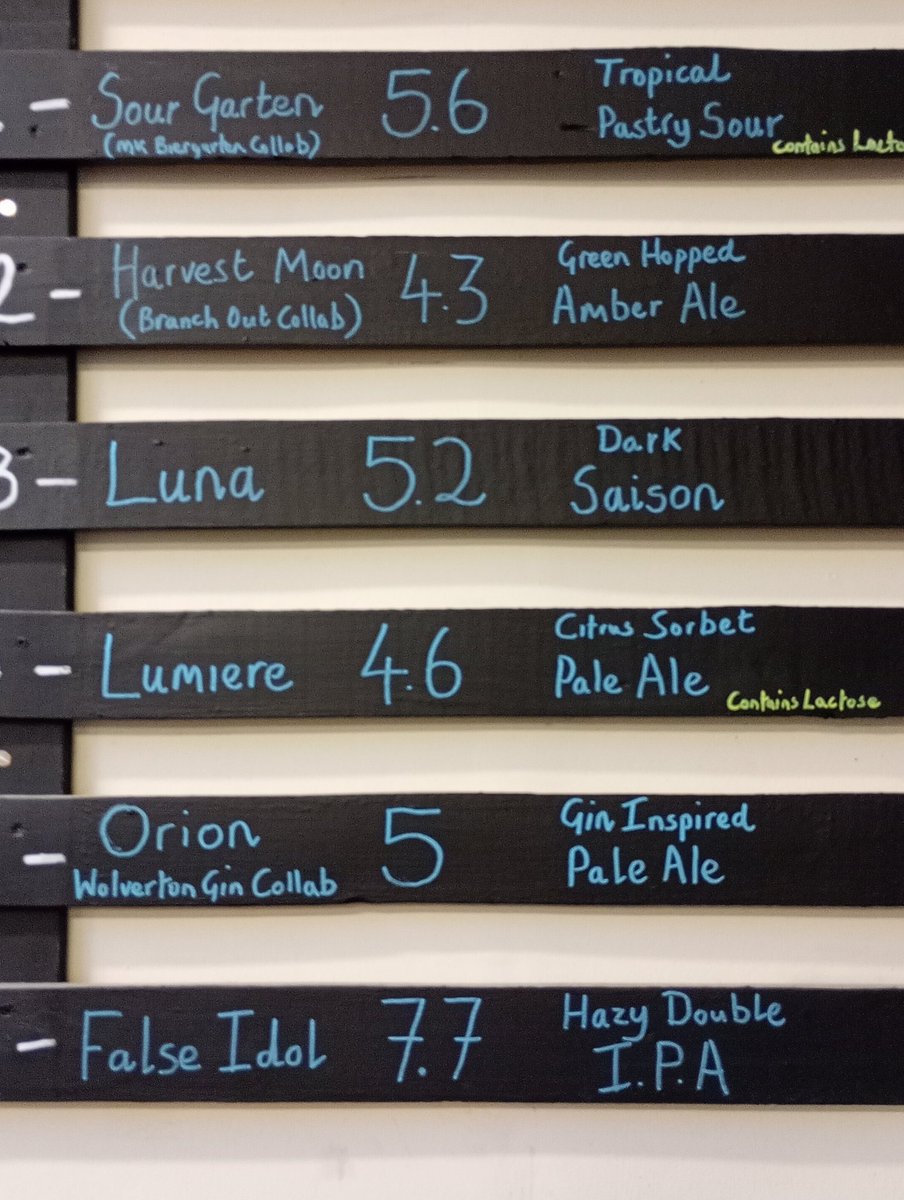 - Sour Garten 5.6 Tropical
Pastry Sour
(MK Biergarten Collab) contains Lacto
2 - Harvest Moon 4.3 Green Hopped
(Branch Out Collab) Amber Ale
3 - Luna 5.2 Dark
Saison
- Lumiere 4.6 Citrus Sorbet
Pale Ale
Contains Lactose
- Orion 5 Gin Inspired
Wolverton Gin Collab Pale Ale
- False Idol 7.7 Hazy Double
I.P.A